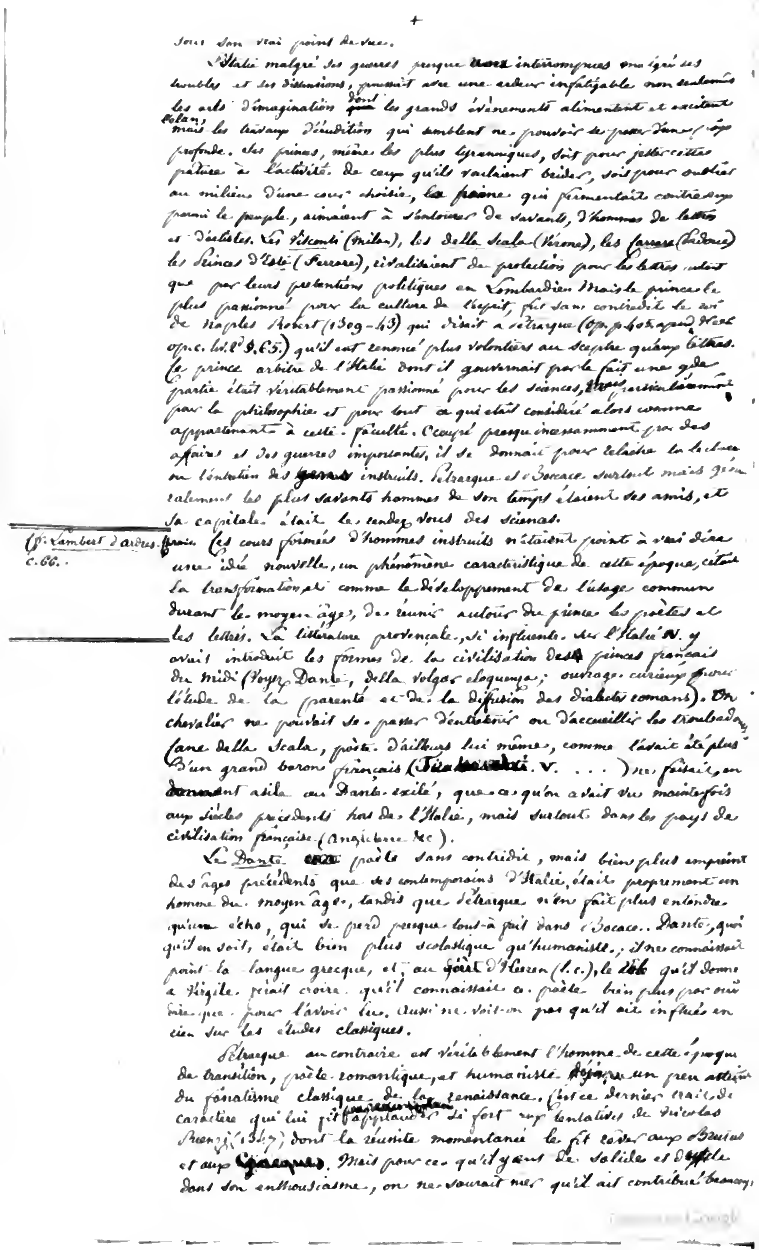 +
sous son vrai point de vue.
L'Italie malgré ses guerres presque interrompues malgré ses
troubles et ses dissensions, poussait avec une ardeur infatigable non seulement
les arts d'imagination dont les grands évènements alimentent et excitent
l'élan, mais les travaux d'érudition qui semblent ne pouvoir se passer d'une paix
profonde. Les princes, même les plus tyranniques, soit pour jetter cette
pâture à l'activité de ceux qu'ils voulaient brider, soit pour oublier
au milieu d'une cour choisie, la haine qui fermentait contre eux
parmi le peuple, aimaient à s'entourer de savants, d'hommes de lettres
et d'artistes. Les Visconti (Milan), les della Scala (Vérone), les Carrare (Padoue)
les Princes d'Este (Ferrare), rivalisaient de protection pour les lettres autant
que par leurs prétentions politiques en Lombardie. Mais le prince le
plus passionné pour la culture de l'esprit, fut sans contredit le roi
de Naples Robert (1309-43) qui disait a Pétrarque (op. p. apud Heer
op. c. liv. 2 §. 65.) qu'il eut renoncé plus volontiers au sceptre qu'aux lettres.
Ce prince arbitre de l'Italie dont il gouvernait par le fait une gde
partie était véritablement passionné pour les sciences, particulièrement
pour la philosophie et pour tout ce qui était considéré alors comme
appartenant à cette faculté. Occupé presqu'incessamment par des
affaires et des guerres importantes, il se donnait pour relâche la lecture
ou l'entretien des instruits. Pétrarque et Bocace surtout mais géné-
ralement les plus savants hommes de son temps étaient ses amis, et
sa capitale était le rendez vous des sciences.
Cf. Lambert d'Ardres.
c. 66..
Ces cours formées d'hommes instruits n'étaient point à vrai dire
une idée nouvelle, un phénomène caractéristique de cette époque, c'était
la transformation et comme le développement de l'usage commun
durant le moyen âge, de réunir autour du prince les poètes et
les lettrés. La littérature provençale, si influente sur l'Italie N. y
avait introduit les formes de la civilisation des princes français
du midi (Voyez Dante, della volgar eloquenza; ouvrage curieux pour
l'étude de la parenté et de la diffusion des dialectes romans). Un
chevalier ne pouvait se passer d'entretenir ou d'accueillir les troubadours
Cane della Scala, poète d'ailleurs lui même, comme l'avait été plus
d'un grand baron français ( V. . . . ) ne faisait, en
donnant asile au Dante exilé, que ce qu'on avait vu maintefois
aux siècles précédents hors de l'Italie, mais surtout dans les pays de
civilisation française (Angleterre &c).
Le Dante poète sans contredit, mais bien plus empreint
des âges précédents que ses contemporains d'Italie, était proprement un
homme du moyen âge, tandis que Pétrarque n'en fait plus entendre
qu'un écho, qui se perd presque tout-à fait dans Bocace. Dante, quoi
qu'il en soit, était bien plus scolastique qu'humaniste; il ne connaissait
point la langue grecque, et, au d'Heeren (l.c.), le rôle qu'il donne
a Virgile ferait croire qu'il connaissait ce poète bien plus par ouï
dire que pour l'avoir lu. Aussi ne voit-on pas qu'il ait influé en
rien sur les études classiques.
Pétrarque au contraire est véritablement l'homme de cette époque
de transition, poète romantique, et humaniste déjà un peu atteint
du fanatisme classique de la renaissance. C'est ce dernier trait de
caractère qui lui fit applaudir si fort aux tentatives de Nicolas
Rienzi (1347) dont la réussite momentanée le fit rêver aux Brutus
et aux Gracques. Mais pour ce qu'il y eut de solide et d'utile
dans son enthousiasme, on ne saurait nier qu'il ait contribué beaucoup